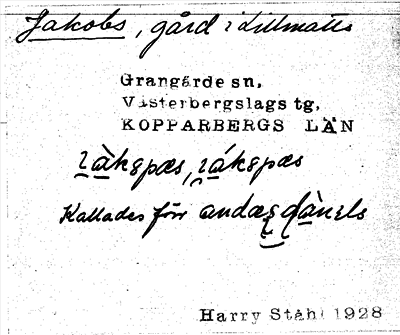 Jakobs, gård i Lillmatts
Grangärde sn,
Västerbergslags tg,
KOPPARBERGS LÄN
Kallades förr
Harry Ståhl 1928